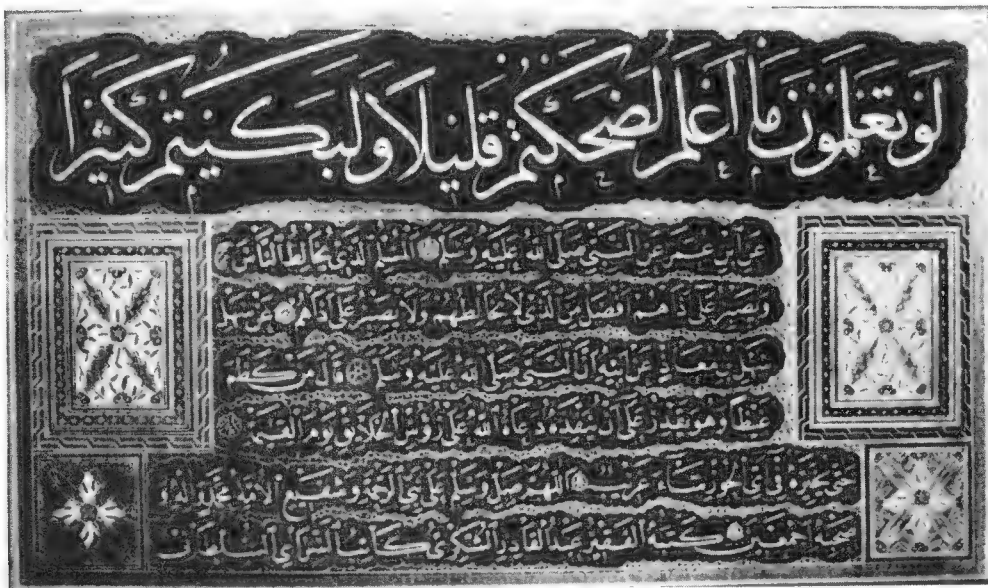 لَوْ تَعْلَمُونَ مَا أَعْلَمُ لَضَحِكْتُمْ قَلِيلًا وَلَبَكَيْتُمْ كَثِيرًا
عن ابن عمر عن النبي صلى الله عليه وسلم المسلم الذي يخالط الناس
ويصبر على ذاهم افضل من الذي لا يخالطهم ولا يصبر على ذاهم عن سهل
سهل بن معاذ عن ابيه ان النبي صلى الله عليه وسلم قال من كظم
غيظا وهو يقدر على ان ينفذه دعاه الله على رؤس الخلائق يوم القيمة
حتى يخيره في اي الحور شاء اللهم صل وسلم على نبي الرحمة وشفيع الامة محمد واله و
صحبه اجمعين كتبه الفقير عبد القادر الشكري كاتب السراي السلطاني